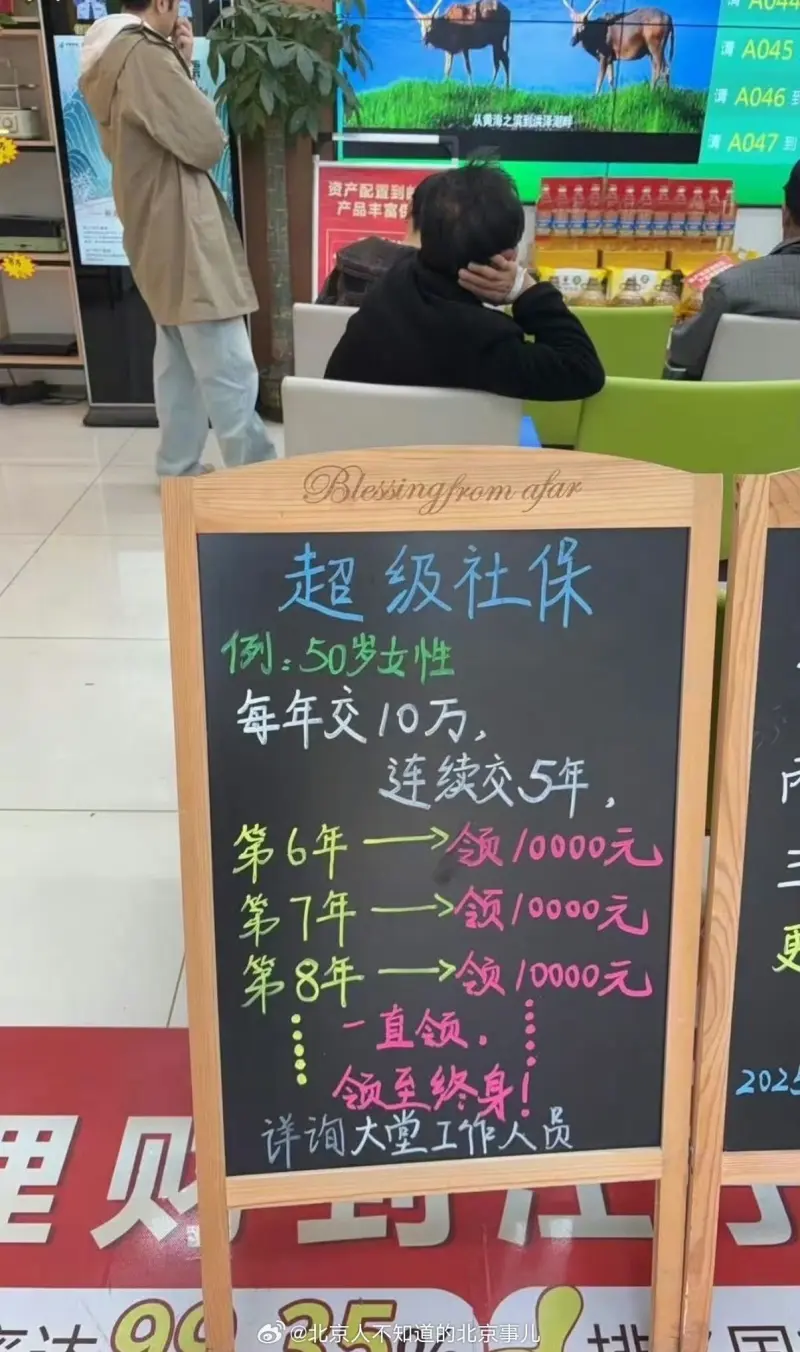 A044
请 A045
请 A046 到
请 A047 到
从黄海之滨到洪泽湖畔
资产配置到
产品丰富
Blessing from afar
超级社保
例：50岁女性
每年交10万，
连续交5年，
第6年 → 领10000元
第7年 → 领10000元
第8年 → 领10000元
一直领，
领至终身！
详询大堂工作人员
2025
理财到江
达99.35%
@北京人不知道的北京事儿